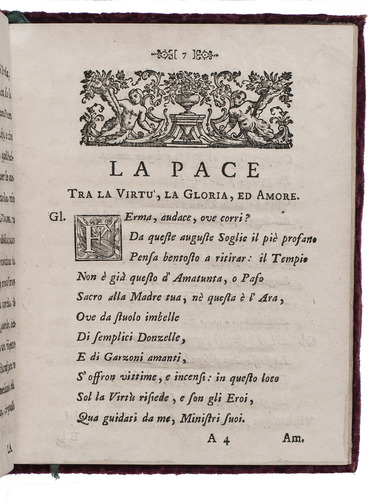 [ 7 ]
LA PACE
TRA LA VIRTU', LA GLORIA, ED AMORE.
Gl. FErma, audace, ove corri?
Da queste auguste Soglie il piè profano
Pensa bentosto a ritirar: il Tempio
Non è già questo d'Amatunta, o Pafo
Sacro alla Madre tua, nè questa è l'Ara,
Ove da stuolo imbelle
Di semplici Donzelle,
E di Garzoni amanti,
S'offron vittime, e incensi: in questo loco
Sol la Virtù risiede, e son gli Eroi,
Qua guidati da me, Ministri suoi.
A 4 Am.